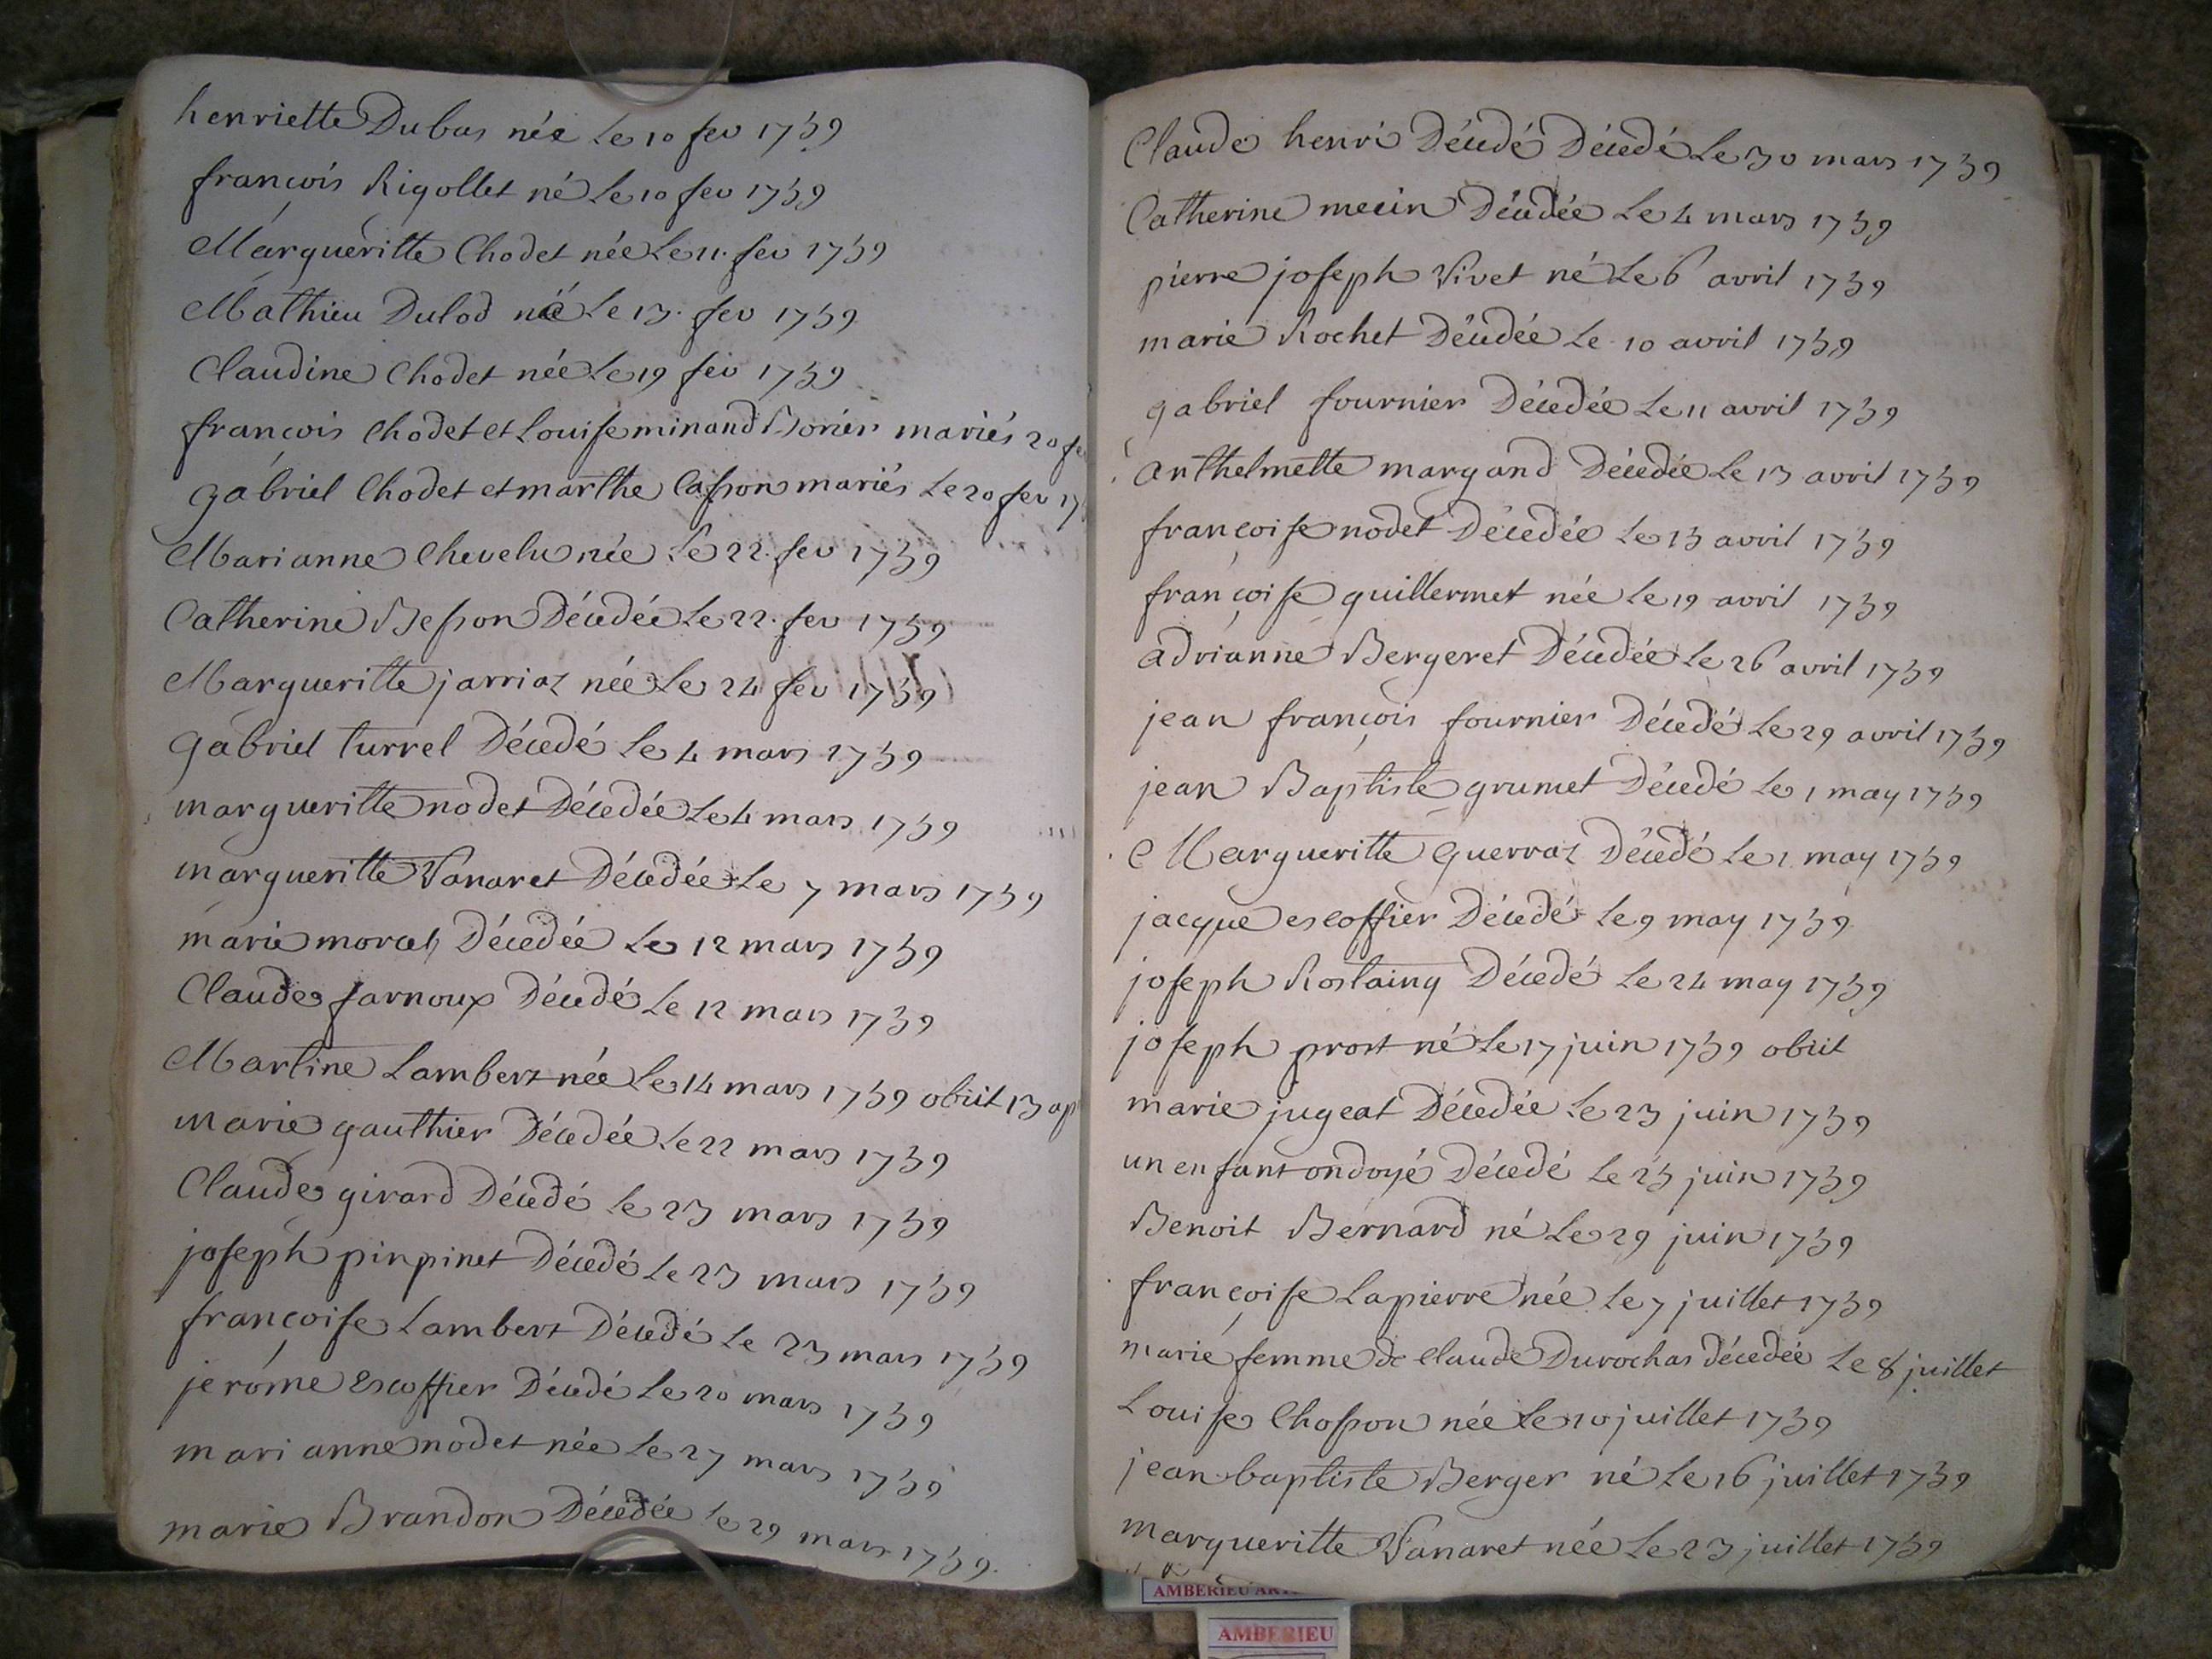 henriette Dubas née Le 10 fev 1739
françois Rigollet né Le 10 fev 1739
Margueritte Chodet née Le 11. fev 1739
Mathieu Dulod né Le 13. fev 1739
Claudine Chodet née Le 19 fev 1739
françois Chodet et Louise minand mariés 20 fe
gabriel Chodet et marthe Casson mariés Le 20 fev 17
Marianne Chevelu née Le 22. fev 1739
Catherine Besson Décédée Le 22. fev 1739
Margueritte jarriaz née Le 24 fev 1739
gabriel turrel Décedé Le 4 mars 1739
margueritte nodet Décedée Le 4 mars 1739
margueritte Vanaret Décedée Le 7 mars 1739
marie morcel Décedée Le 12 mars 1739
Claude farnoux Décedé Le 12 mars 1739
Martine Lambert née Le 14 mars 1739 obiit 13 ap
marie gauthier Décedée Le 22 mars 1739
Claude girard Décedé Le 23 mars 1739
joseph pinpinet Décedé Le 23 mars 1739
françoise Lambert Décedé Le 23 mars 1739
jerôme Escoffier Décedé Le 20 mars 1739
marianne nodet née Le 27 mars 1739
marie Brandon Décedée Le 29 mars 1739.
Claude henri Décedé Décedé Le 30 mars 1739
Catherine mecin Décedée Le 4 mars 1739
pierre joseph Vivet né Le 6 avril 1739
marie Rochet Décedée Le 10 avril 1739
gabriel fournier Décedée Le 11 avril 1739
anthelmette margand Décedée Le 13 avril 1739
françoise nodet Décedée Le 13 avril 1739
françoise guillermet née Le 19 avril 1739
adrianne Bergeret Décedée Le 26 avril 1739
jean françois fournier Décedé Le 29 avril 1739
jean Baptiste grumet Décedé Le 1 may 1739
Margueritte Guerraz Décedé Le 1. may 1739
jacque escoffier Décedé Le 9 may 1739
joseph Rostaing Décedé Le 24 may 1739
joseph prost né Le 17 juin 1739 obiit
marie jugeat Décedée Le 23 juin 1739
un enfant ondoyé Décedé Le 23 juin 1739
Benoit Bernard né Le 29 juin 1739
françoise Lapierre née Le 7 juillet 1739
marie femme de Claude Durochas décedée Le 8 juillet
Louise Chosson née Le 10 juillet 1739
jean baptiste Berger né Le 16 juillet 1739
margueritte Vanaret née Le 23 juillet 1739
AMBERIEU
AMBERIEU